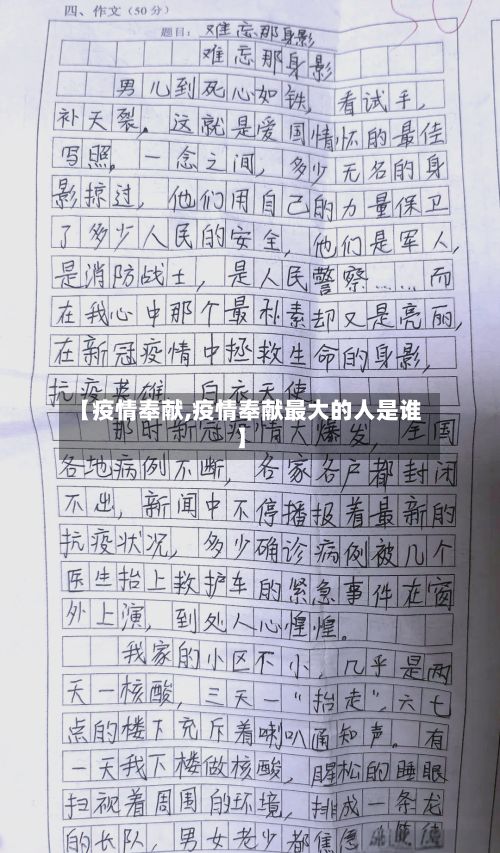 四、作文（50分）
题目：难忘那身影
难忘那身影
男儿到死心如铁，看试手，
补天裂。这就是爱国情怀的最佳
写照。一念之间，多少无名的身
影掠过，他们用自己的力量保卫
了多少人民的安全，他们是军人，
是消防战士，是人民警察……而
在我心中那个最朴素却又是亮丽，
在新冠疫情中拯救生命的身影，
抗疫英雄 白衣天使
【疫情奉献,疫情奉献最大的人是谁
】
那时新冠疫情大爆发，全国
各地病例不断，各家各户都封闭
不出，新闻中不停播报着最新的
抗疫状况，多少确诊病例被几个
医生抬上救护车的紧急事件在窗
外上演，到处人心惶惶。
我家的小区不小，几乎是两
天一核酸，三天一“抬走”，六七
点的楼下充斥着喇叭通知声。有
一天我下楼做核酸，腥松的睡眼
扫视着周围的环境，排成一条龙
的长队，男女老少都焦